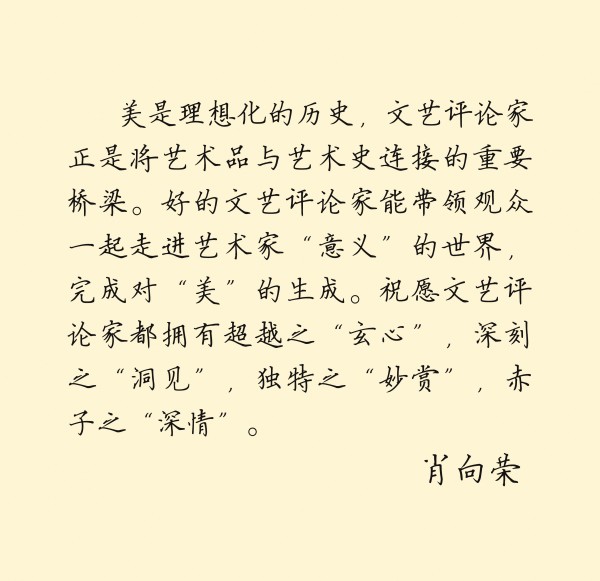 美是理想化的历史，文艺评论家
正是将艺术品与艺术史连接的重要
桥梁。好的文艺评论家能带领观众
一起走进艺术家“意义”的世界，
完成对“美”的生成。祝愿文艺评
论家都拥有超越之“玄心”，深刻
之“洞见”，独特之“妙赏”，赤
子之“深情”。
肖向荣